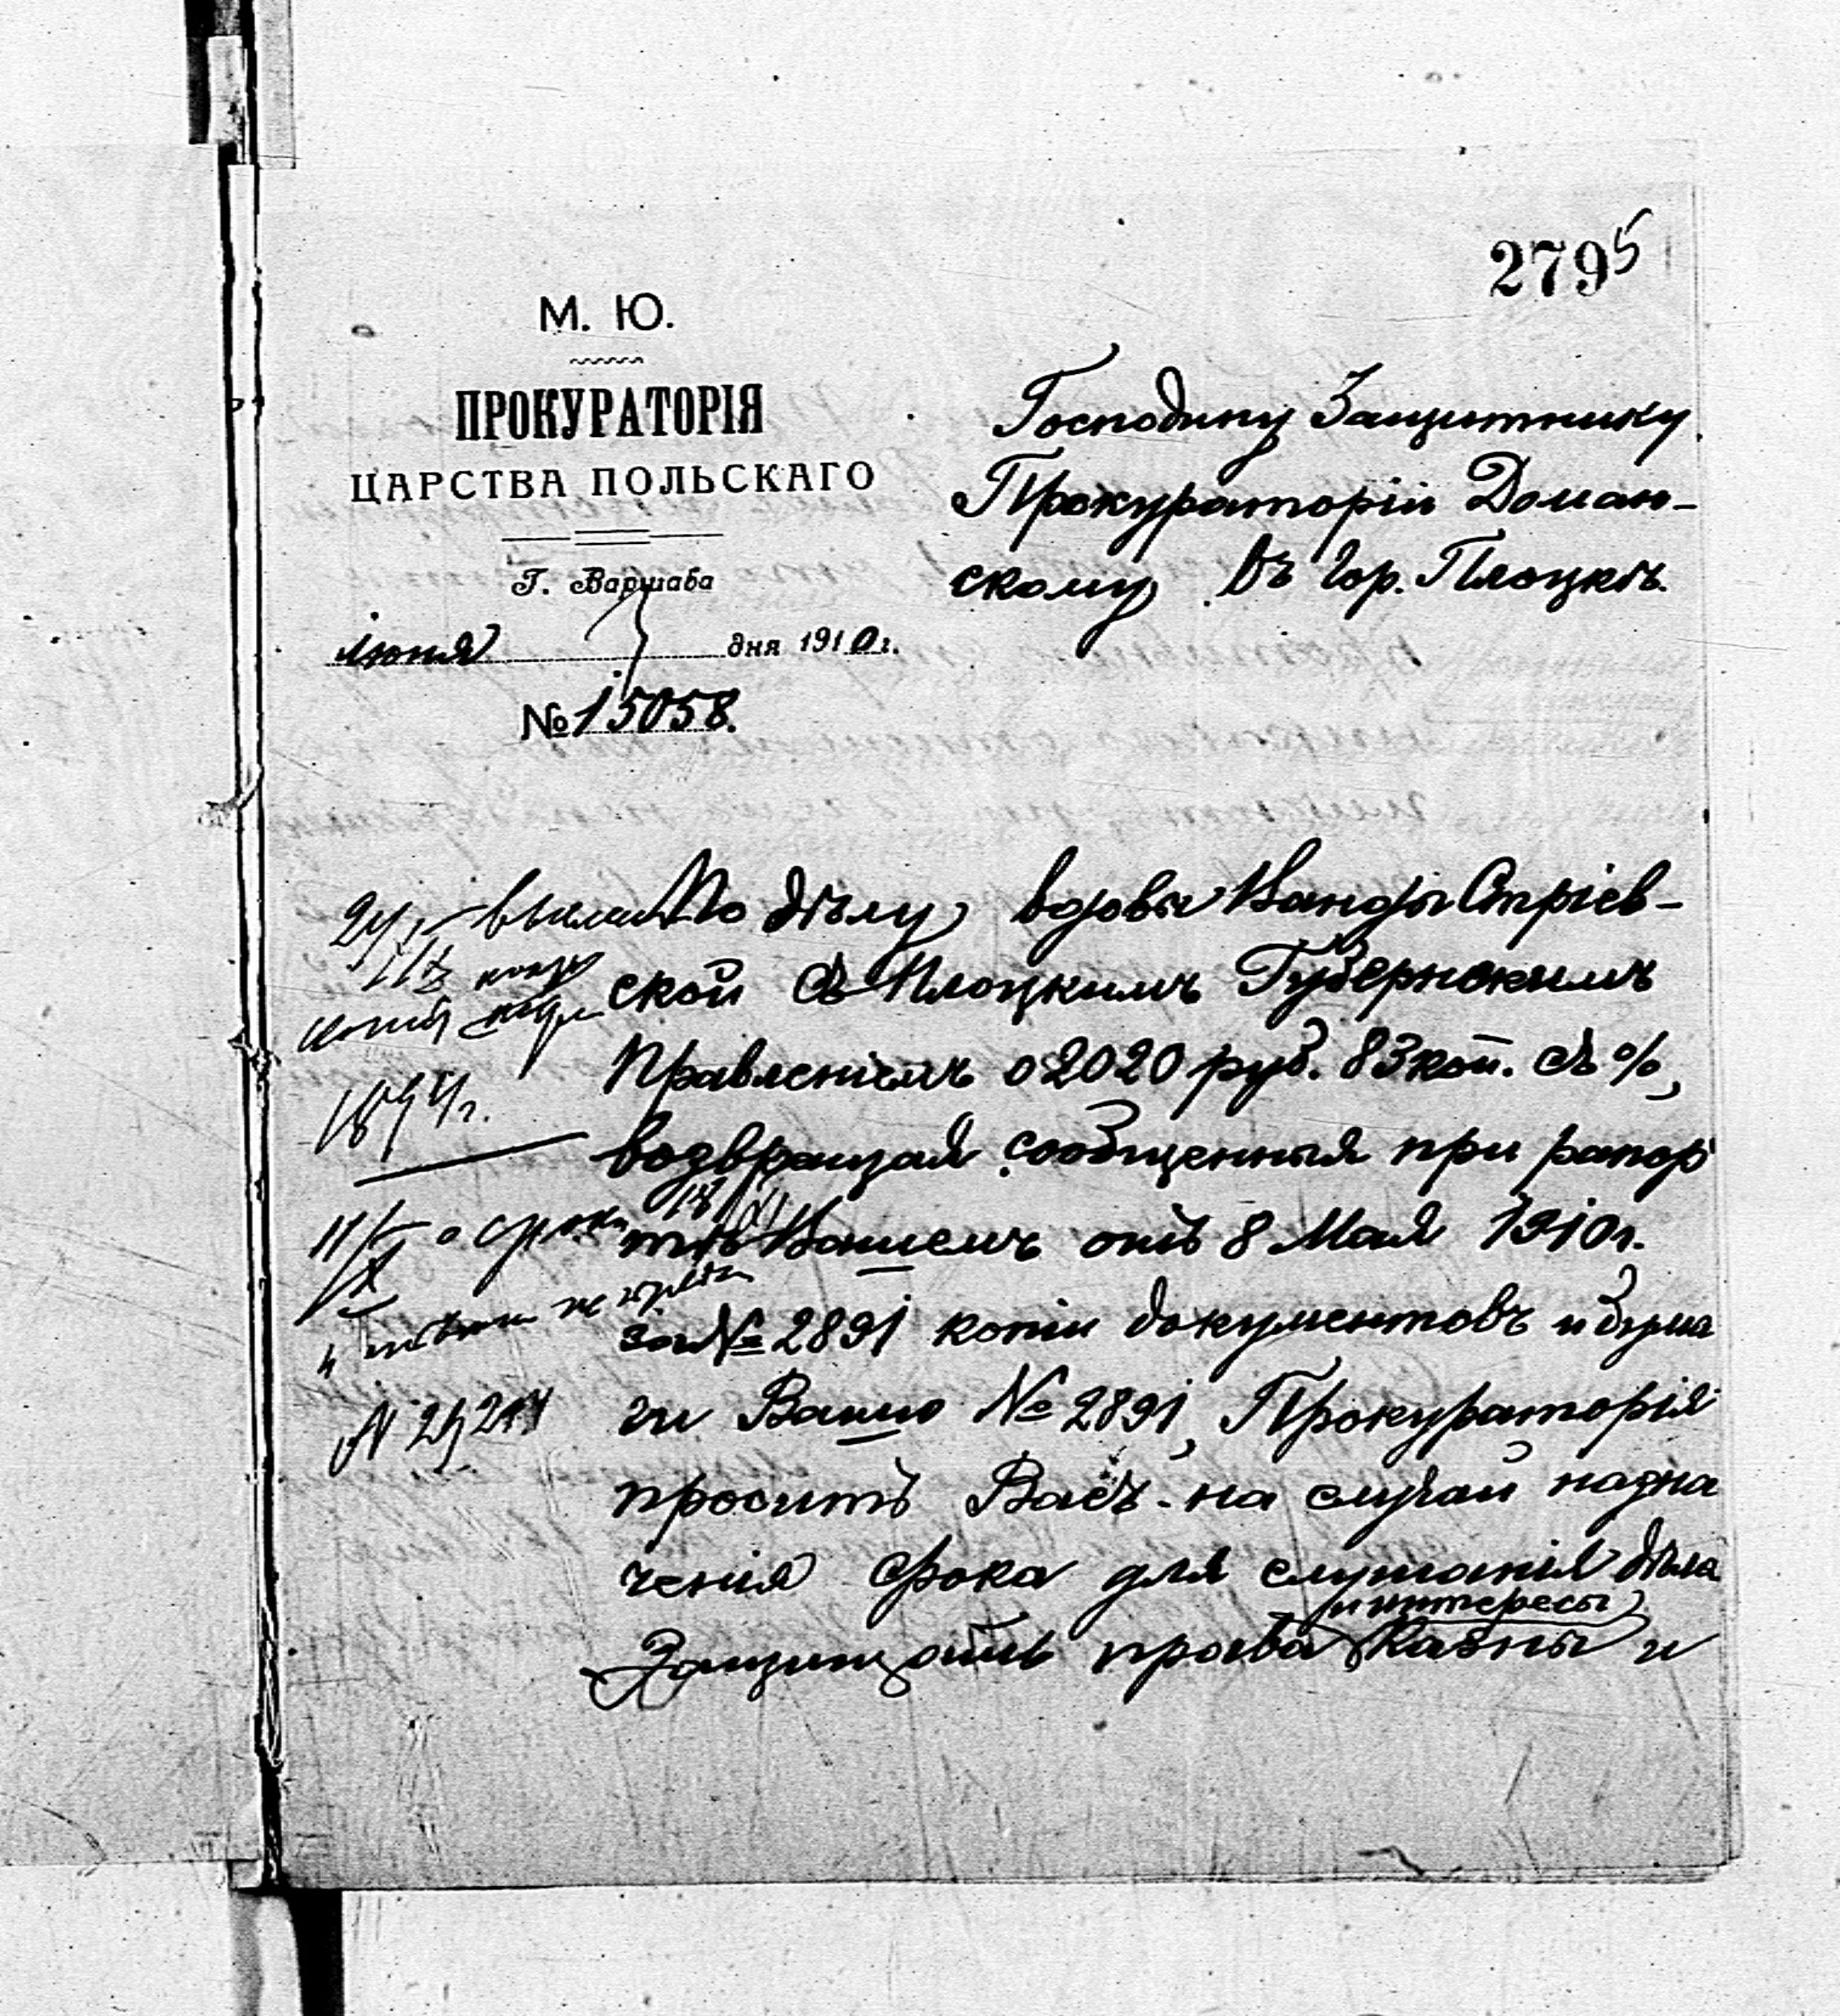 2795
М. Ю.
ПРОКУРАТОРІЯ
ЦАРСТВА ПОЛЬСКАГО
Г. Варшава
Іюня 7 дня 1910 г.
№ 15058.
Господину Защитнику
Прокураторіи Доман-
скому въ гор. Плоцкѣ.
По дѣлу вдовы Ванды Стріев-
ской съ Плоцкимъ Губернскимъ
Правленіемъ о 2020 руб. 83 коп. съ %,
возвращая сообщенныя при рапор
тѣ Вашемъ отъ 8 Мая 1910 г.
за № 2891 копіи документовъ и бума
ги Вашю № 2891, Прокураторія
проситъ Васъ на случай назна
ченія срока для слушанія дѣла
и интересы
Защищать права Казны и
о срокѣ